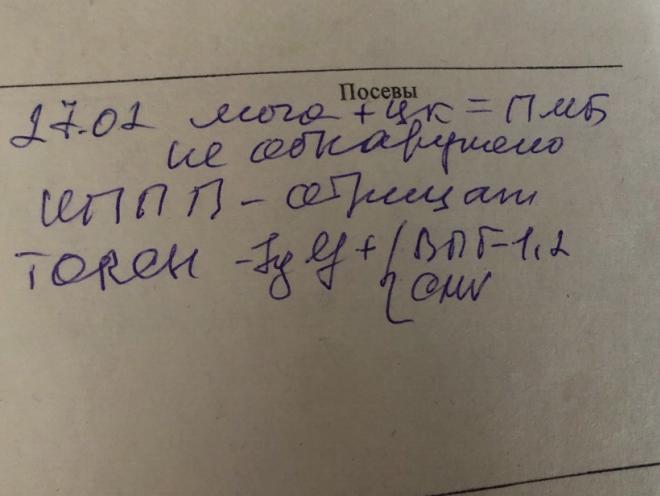 Посевы
27.01 моча + цк = ПМБ
не обнаружено
ИППП - отрицат
TORCH - IgG + { ВПГ-1,2
CMV